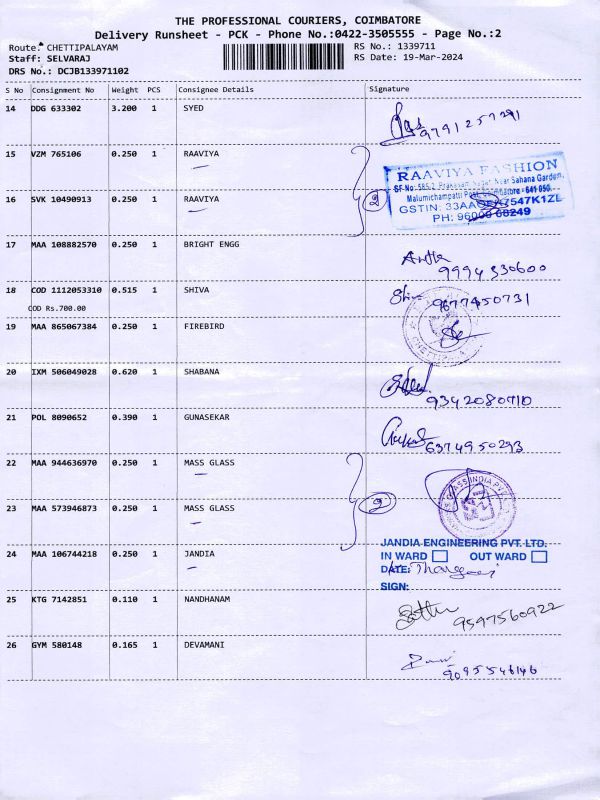 THE PROFESSIONAL COURIERS, COIMBATORE
Delivery Runsheet - PCK - Phone No.:0422-3505555 - Page No.:2
Route: CHETTIPALAYAM
RS No.: 1339711
Staff: SELVARAJ
RS Date: 19-Mar-2024
DRS No.: DCJB133971102
S No Consignment No Weight PCS Consignee Details Signature
14 DDG 633302 3.200 1 SYED
9791257291
15 VZM 765106 0.250 1 RAAVIYA
RAAVIYA FASHION
Malumichampatti Post, Coimbatore - 641 050.
16 SVK 10490913 0.250 1 RAAVIYA
2
17 MAA 108882570 0.250 1 BRIGHT ENGG
9994330600
18 COD 1112053310 0.515 1 SHIVA
Shiva 9677450731
COD Rs.700.00
19 MAA 865067384 0.250 1 FIREBIRD
20 IXM 506049028 0.620 1 SHABANA
9342080710
21 POL 8090652 0.390 1 GUNASEKAR
6374950293
22 MAA 944636970 0.250 1 MASS GLASS
23 MAA 573946873 0.250 1 MASS GLASS
2
24 MAA 106744218 0.250 1 JANDIA
JANDIA ENGINEERING PVT. LTD.
IN WARD OUT WARD
DATE:
SIGN:
25 KTG 7142851 0.110 1 NANDHANAM
9597560922
26 GYM 580148 0.165 1 DEVAMANI
9095546146